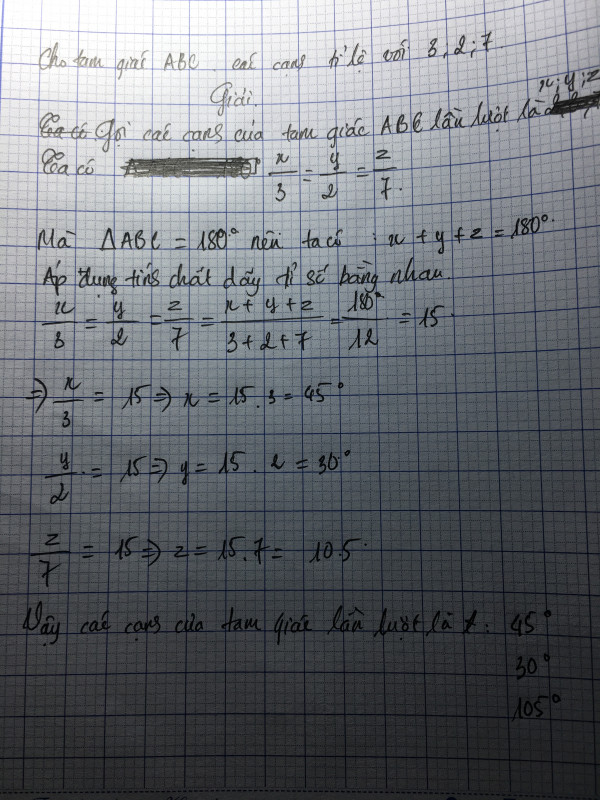 Cho tam giác ABC các cạnh tỉ lệ với 3, 2; 7.
Giải.
x; y; z
Gọi các cạnh của tam giác ABC lần lượt là
Ta có x/3 = y/2 = z/7.
Mà ΔABC = 180° nên ta có : x + y + z = 180°.
Áp dụng tính chất dãy tỉ số bằng nhau.
x/3 = y/2 = z/7 = (x + y + z)/(3 + 2 + 7) = 180°/12 = 15.
=> x/3 = 15 => x = 15 . 3 = 45°
y/2 = 15 => y = 15 . 2 = 30°
z/7 = 15 => z = 15.7 = 10.5.
Vậy các cạnh của tam giác lần lượt là : 45°
30°
105°